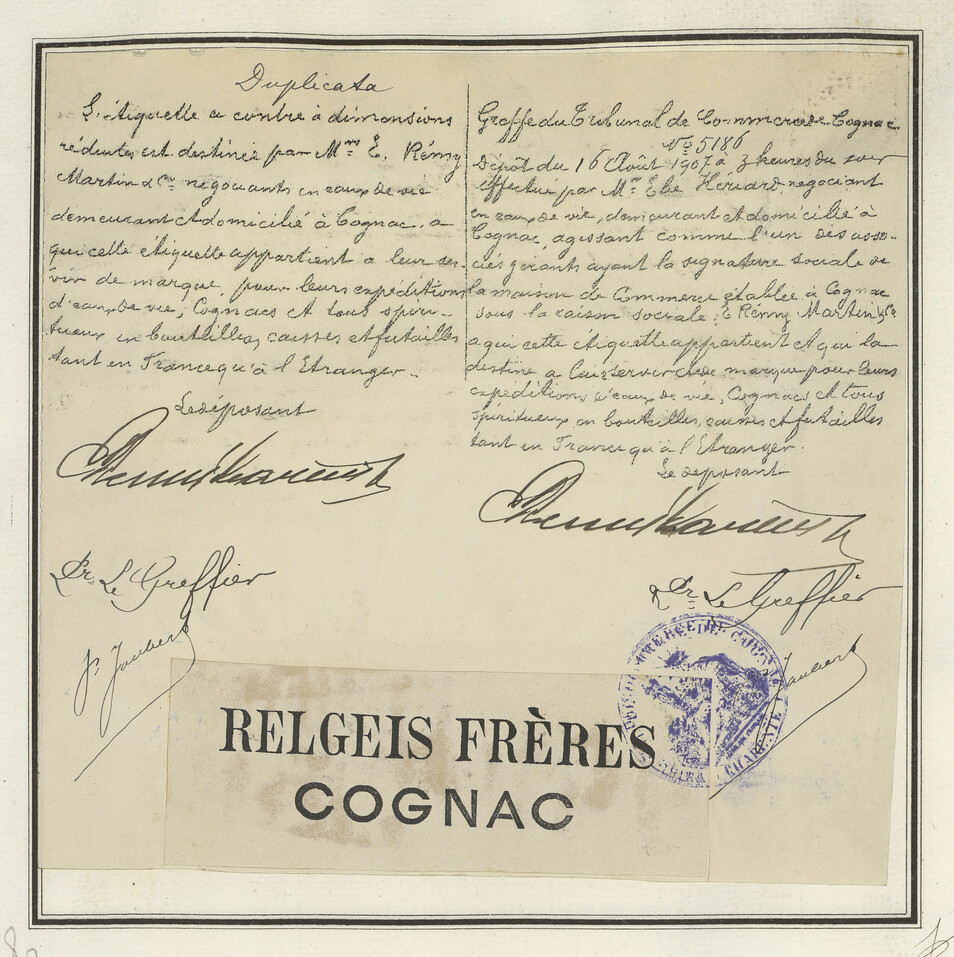 Duplicata
L'étiquette ci contre à dimensions
réduites est destinée par Mrs E. Rémy
Martin & Cie négociants en eaux de vie
demeurant et domicilié à Cognac, a
qui cette étiquette appartient a leur ser-
vir de marque, pour leurs expéditions
d'eaux de vie, Cognacs et tous spiri-
tueux en bouteilles, caisses et futailles
tant en France qu'à l'Etranger.
Le déposant
Remy Martin &
Pr Le Greffier
Joubert
Greffe du Tribunal de Commerce de Cognac
No 5186
Dépôt du 16 Août 1907 à 3 heures du soir
effectué par Mr Elie Hériard négociant
en eaux de vie, demeurant et domicilié à
Cognac, agissant comme l'un des asso-
ciés gérants ayant la signature sociale de
la maison de Commerce établie à Cognac
sous la raison sociale, E Rémy Martin & Co
a qui cette étiquette appartient et qui la
destine a lui servir de marque pour leurs
expéditions d'eaux de vie, Cognacs et tous
spiritueux en bouteilles, caisses et futailles
tant en France qu'à l'Etranger.
Le déposant
Remy Martin &
Pr Le Greffier
Joubert
COMMERCE DE COGNAC
CHARENTE
RELGEIS FRÈRES
COGNAC